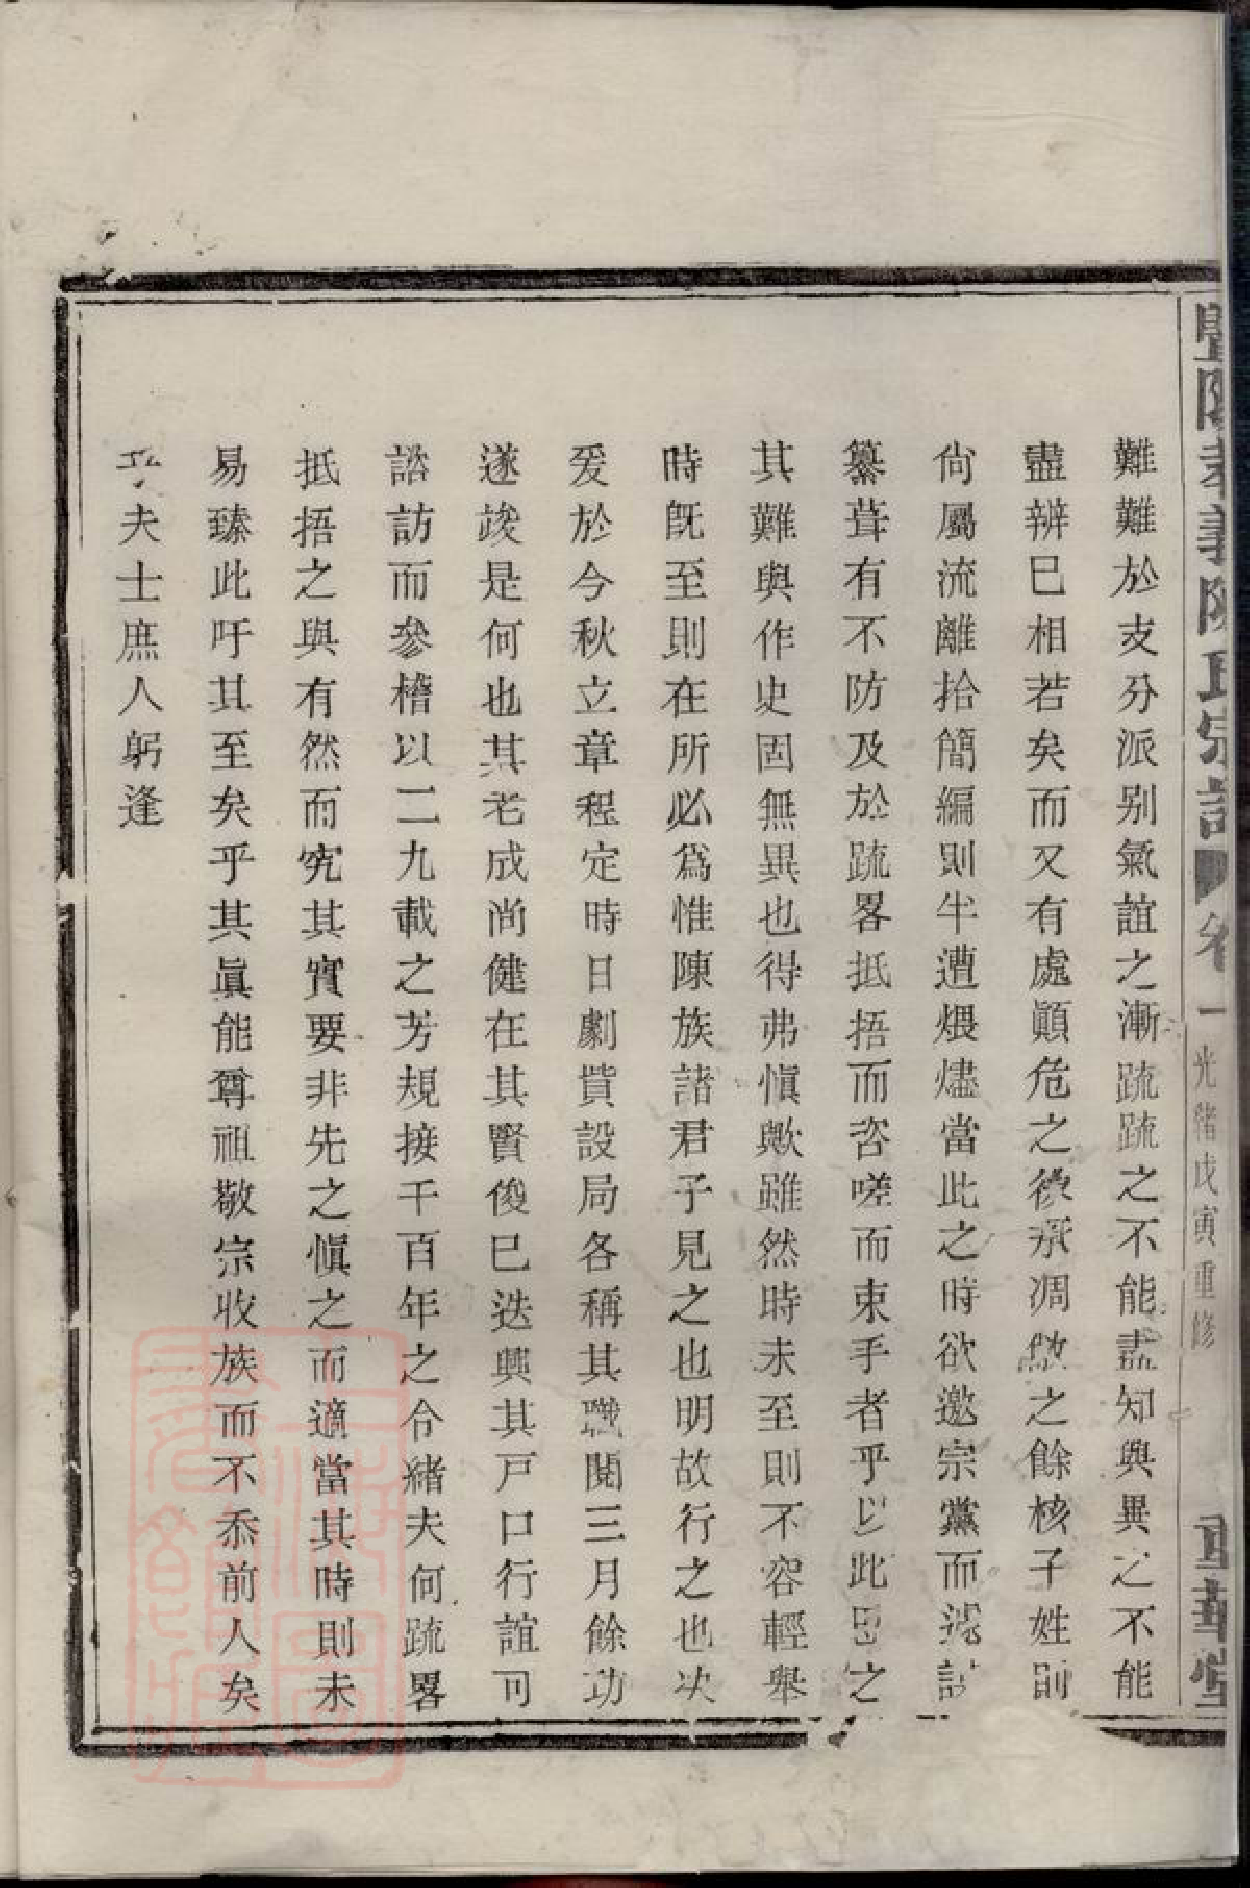 暨陽孝義陳氏宗譜 卷一 光緒戊寅重修 重華堂
難難於支分派别氣誼之漸䟽䟽之不能盡知與異之不能
盡辨巳相若矣而又有處顚危之後承凋敝之餘核子姓則
尙屬流離拾簡編則半遭煨燼當此之時欲邀宗黨而謀諸
纂葺有不防及於䟽畧抵捂而咨嗟而束手者乎以此思之
其難與作史固無異也得弗愼歟雖然時未至則不容輕舉
時旣至則在所必爲惟陳族諸君子見之也明故行之也决
爰於今秋立章程定時日劇貲設局各稱其職閱三月餘功
遂竣是何也其老成尚健在其賢俊巳迭興其戸口行誼可
諮訪而參稽以二九載之芳規接千百年之令緒夫何䟽畧
抵捂之與有然而究其實要非先之愼之而適當其時則未
易臻此吁其至矣乎其眞能尊祖敬宗收族而不忝前人矣
夫士庶人躬逢
上海圖書館藏